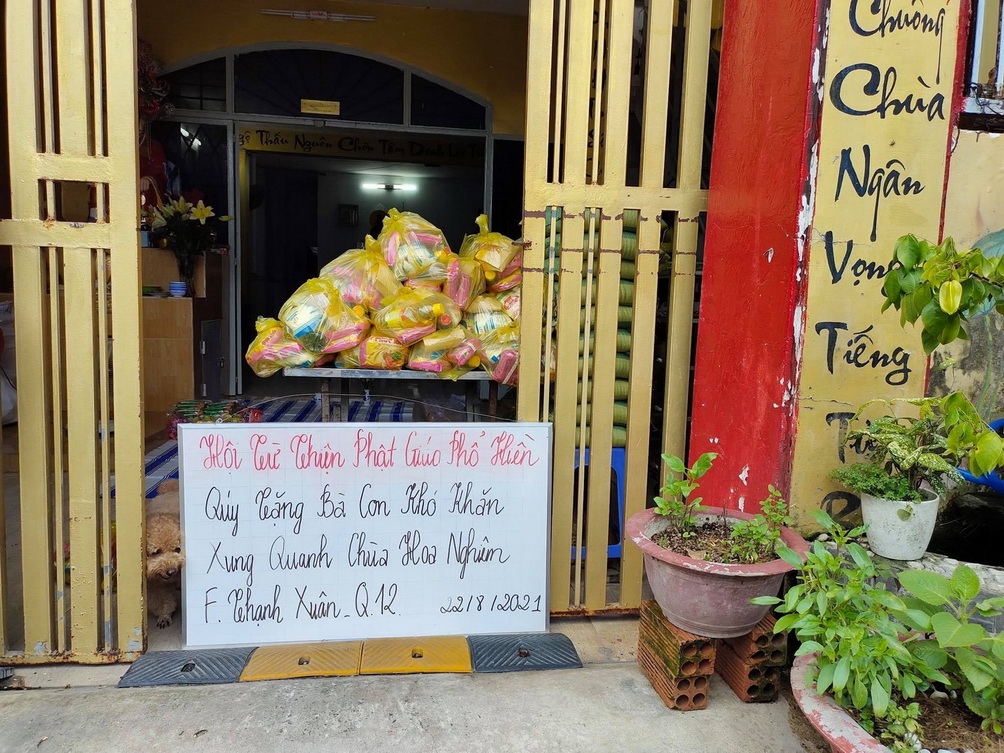 Thấu Nguồn Chơn Tâm
Hội Từ Thiện Phật Giáo Phổ Hiền
Qúy Tặng Bà Con Khó Khăn
Xung Quanh Chùa Hoa Nghiêm
F. Thạnh Xuân_Q.12. 22/8/2021
Chuông
Chùa
Ngân
Vọng
Tiếng